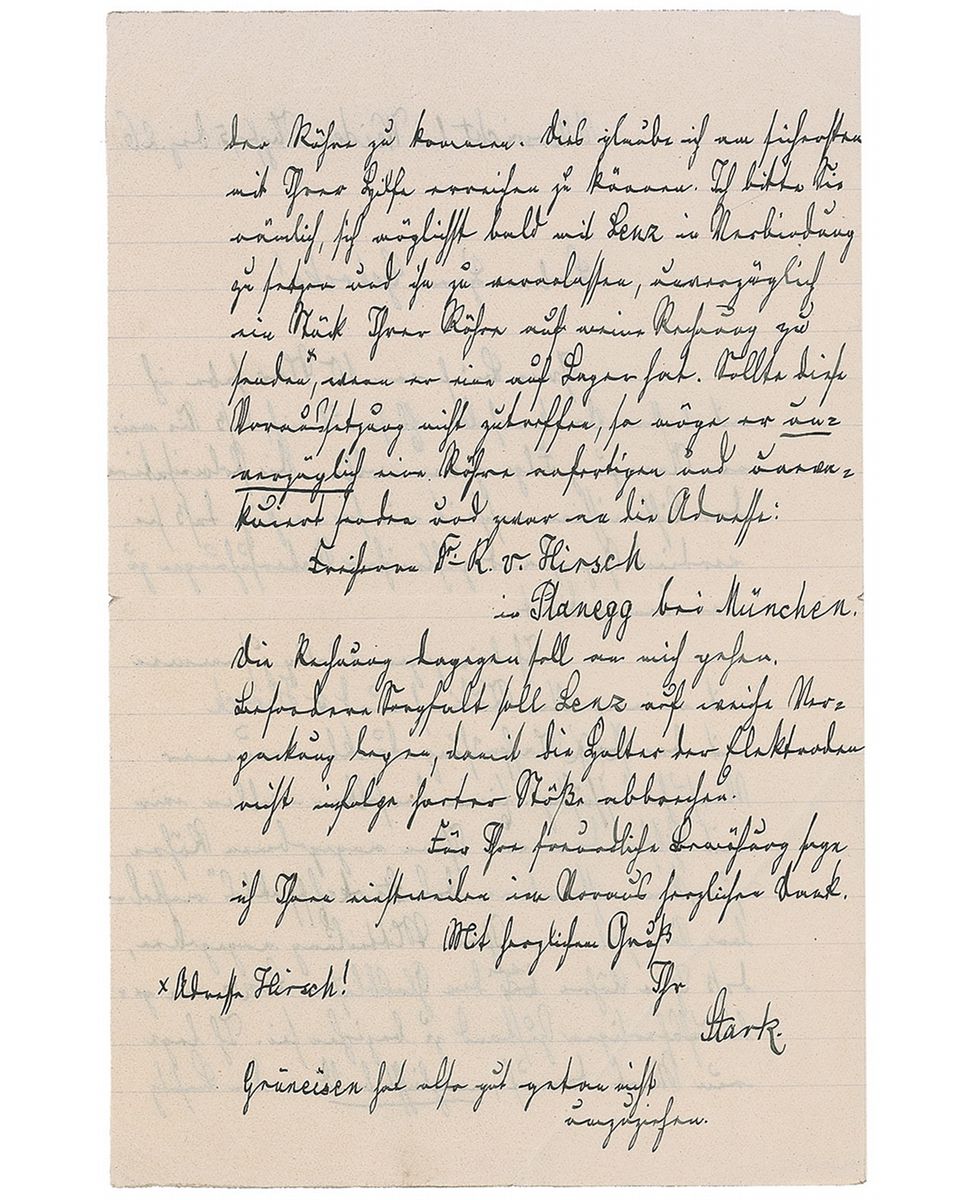 der Röhre zu kommen. Dies glaube ich am sichersten
mit Ihrer Hilfe erreichen zu können. Ich bitte Sie
nämlich, sich möglichst bald mit Lenz in Verbindung
zu setzen und ihn zu veranlassen, unverzüglich
ein Stück Ihrer Röhre auf meine Rechnung zu
senden x, wenn er eine auf Lager hat. Sollte diese
Voraussetzung nicht zutreffen, so möge er un=
verzüglich eine Röhre anfertigen und uneva=
kuiert senden und zwar an die Adresse:
Freiherrn K. v. Hirsch
in Planegg bei München.
Die Rechnung dagegen soll an mich gehen.
Besondere Sorgfalt soll Lenz auf weiche Ver=
packung legen, damit die Halter der Elektroden
nicht infolge harter Stöße abbrechen.
Für Ihre freundliche Bemühung sage
ich Ihnen einstweilen im Voraus herzlichen Dank.
Mit herzlichem Gruß
Ihr
x Adresse Hirsch!
Stark.
Grüneisen hat also gut getan nicht
umzuziehen.